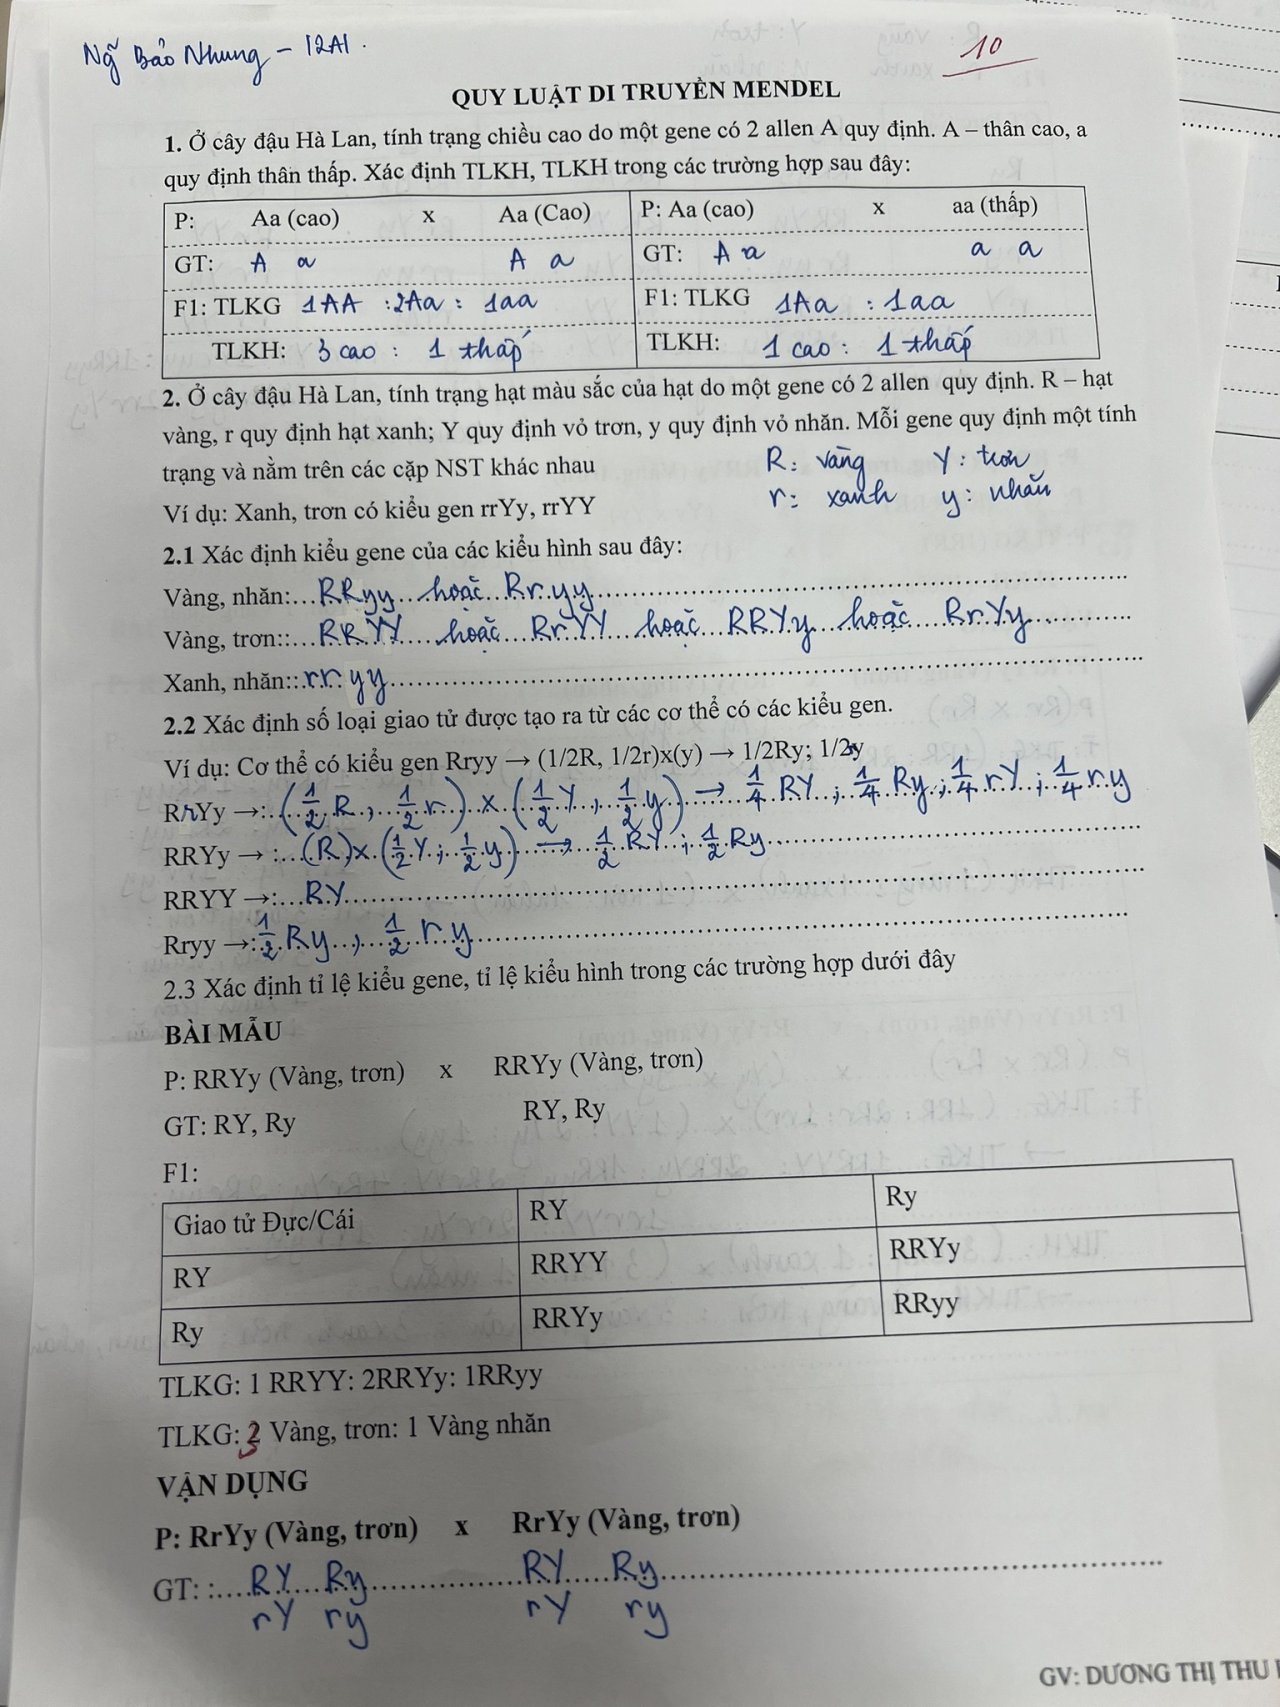 Ng̃ Bảo Nhung - 12A1.
10
QUY LUẬT DI TRUYỀN MENDEL
1. Ở cây đậu Hà Lan, tính trạng chiều cao do một gene có 2 allen A quy định. A – thân cao, a
quy định thân thấp. Xác định TLKH, TLKH trong các trường hợp sau đây:
P: Aa (cao) x Aa (Cao) P: Aa (cao) x aa (thấp)
GT: A a A a GT: A a a a
F1: TLKG 1AA : 2Aa : 1aa F1: TLKG 1Aa : 1aa
TLKH: 3 cao : 1 thấp TLKH: 1 cao : 1 thấp
2. Ở cây đậu Hà Lan, tính trạng hạt màu sắc của hạt do một gene có 2 allen quy định. R – hạt
vàng, r quy định hạt xanh; Y quy định vỏ trơn, y quy định vỏ nhăn. Mỗi gene quy định một tính
trạng và nằm trên các cặp NST khác nhau R: vàng Y: trơn
r: xanh y: nhăn
Ví dụ: Xanh, trơn có kiểu gen rrYy, rrYY
2.1 Xác định kiểu gene của các kiểu hình sau đây:
Vàng, nhăn:...RRyy...hoặc...Rryy...
Vàng, trơn::...RRYY...hoặc...RrYY...hoặc...RRYy...hoặc...RrYy...
Xanh, nhăn::..rryy...
2.2 Xác định số loại giao tử được tạo ra từ các cơ thể có các kiểu gen.
Ví dụ: Cơ thể có kiểu gen Rryy → (1/2R, 1/2r)x(y) → 1/2Ry; 1/2y
RrYy →: (1/2 R, 1/2 r) x (1/2 Y, 1/2 y) → 1/4 RY; 1/4 Ry; 1/4 rY; 1/4 ry
RRYy → :...(R) x (1/2 Y; 1/2 y) → 1/2 RY; 1/2 Ry...
RRYY →:...RY...
Rryy →: 1/2 Ry, 1/2 ry...
2.3 Xác định tỉ lệ kiểu gene, tỉ lệ kiểu hình trong các trường hợp dưới đây
BÀI MẪU
P: RRYy (Vàng, trơn) x RRYy (Vàng, trơn)
GT: RY, Ry RY, Ry
F1:
Giao tử Đực/Cái RY Ry
RY RRYY RRYy
Ry RRYy RRyy
TLKG: 1 RRYY: 2RRYy: 1RRyy
TLKG: 3 Vàng, trơn: 1 Vàng nhăn
VẬN DỤNG
P: RrYy (Vàng, trơn) x RrYy (Vàng, trơn)
GT: :....RY...Ry...RY...Ry...
rY ry rY ry
GV: DƯƠNG THỊ THU